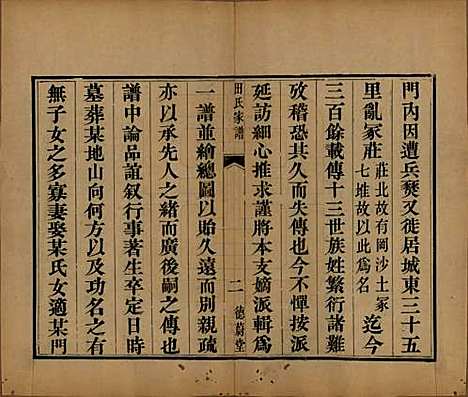 門內因遭兵燹又徙居城東三十五
里亂冢莊莊北故有岡沙土冢七堆故以此爲名迄今
三百餘載傳十三世族姓繁衍諸難
攷稽恐其久而失傳也今不憚按派
延訪細心推求謹將本支嫡派輯爲
田氏家譜 二 德蔚堂
一譜並繪總圖以貽久遠而別親疏
亦以承先人之緒而廣後嗣之傳也
譜中論品誼叙行事著生卒定日時
墓葬某地山向何方以及功名之有
無子女之多寡妻娶某氏女適某門